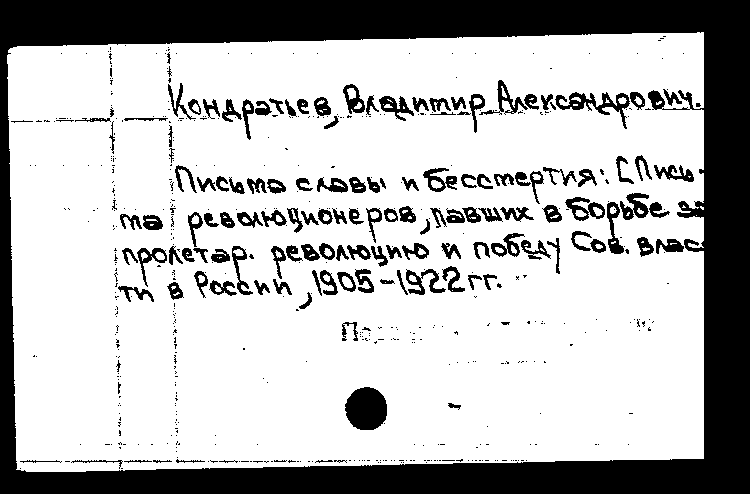 Кондратьев, Владимир Александрович.
Письма славы и бессмертия: [Пись-
ма революционеров, павших в борьбе за
пролетар. революцию и победу Сов. влас
ти в России, 1905-1922 гг.